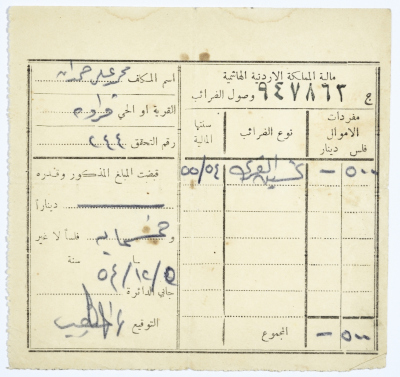 مالية المملكة الاردنية الهاشمية
ج ٩٤٧٨٦٢ وصول الضرائب
مفردات الاموال
فلس دينار
نوع الضرائب
سنتها المالية
٥٠٠ —
القرى
٥٥/٥٤
المجموع
٥٠٠ —
اسم المكلف محمد علي حمدان
القرية او الحي قراوه
رقم التحقق ٢٤٤
قبضت المبلغ المذكور وقدره
ديناراً
و خمسماية فلساً لا غير
سنة
٥٤/١٢/٥
جابي الدائرة
التوقيع